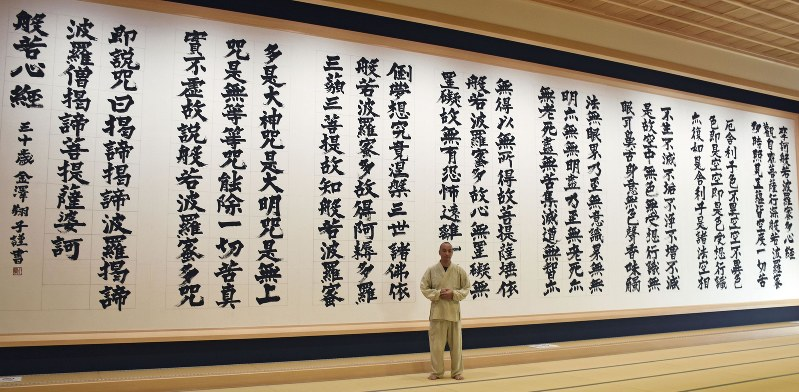 摩訶般若波羅蜜多心經
觀自在菩薩行深般若波羅蜜多
時照見五蘊皆空度一切苦
厄舎利子色不異空空不異色
色即是空空即是色受想行識
亦復如是舎利子是諸法空相
不生不滅不垢不淨不增不減
是故空中無色無受想行識無
眼耳鼻舌身意無色聲香味觸
法無眼界乃至無意識界無無
明亦無無明盡乃至無老死亦
無老死盡無苦集滅道無智亦
無得以無所得故菩提薩埵依
般若波羅蜜多故心無罣礙無
罣礙故無有恐怖遠離一
倒夢想究竟涅槃三世諸佛依
般若波羅蜜多故得阿耨多羅
三藐三菩提故知般若波羅蜜
多是大神咒是大明咒是無上
咒是無等等咒能除一切苦真
實不虛故説般若波羅蜜多咒
即説咒曰揭諦揭諦波羅揭諦
波羅僧揭諦菩提薩婆訶
般若心經
三十歳 金澤翔子謹書